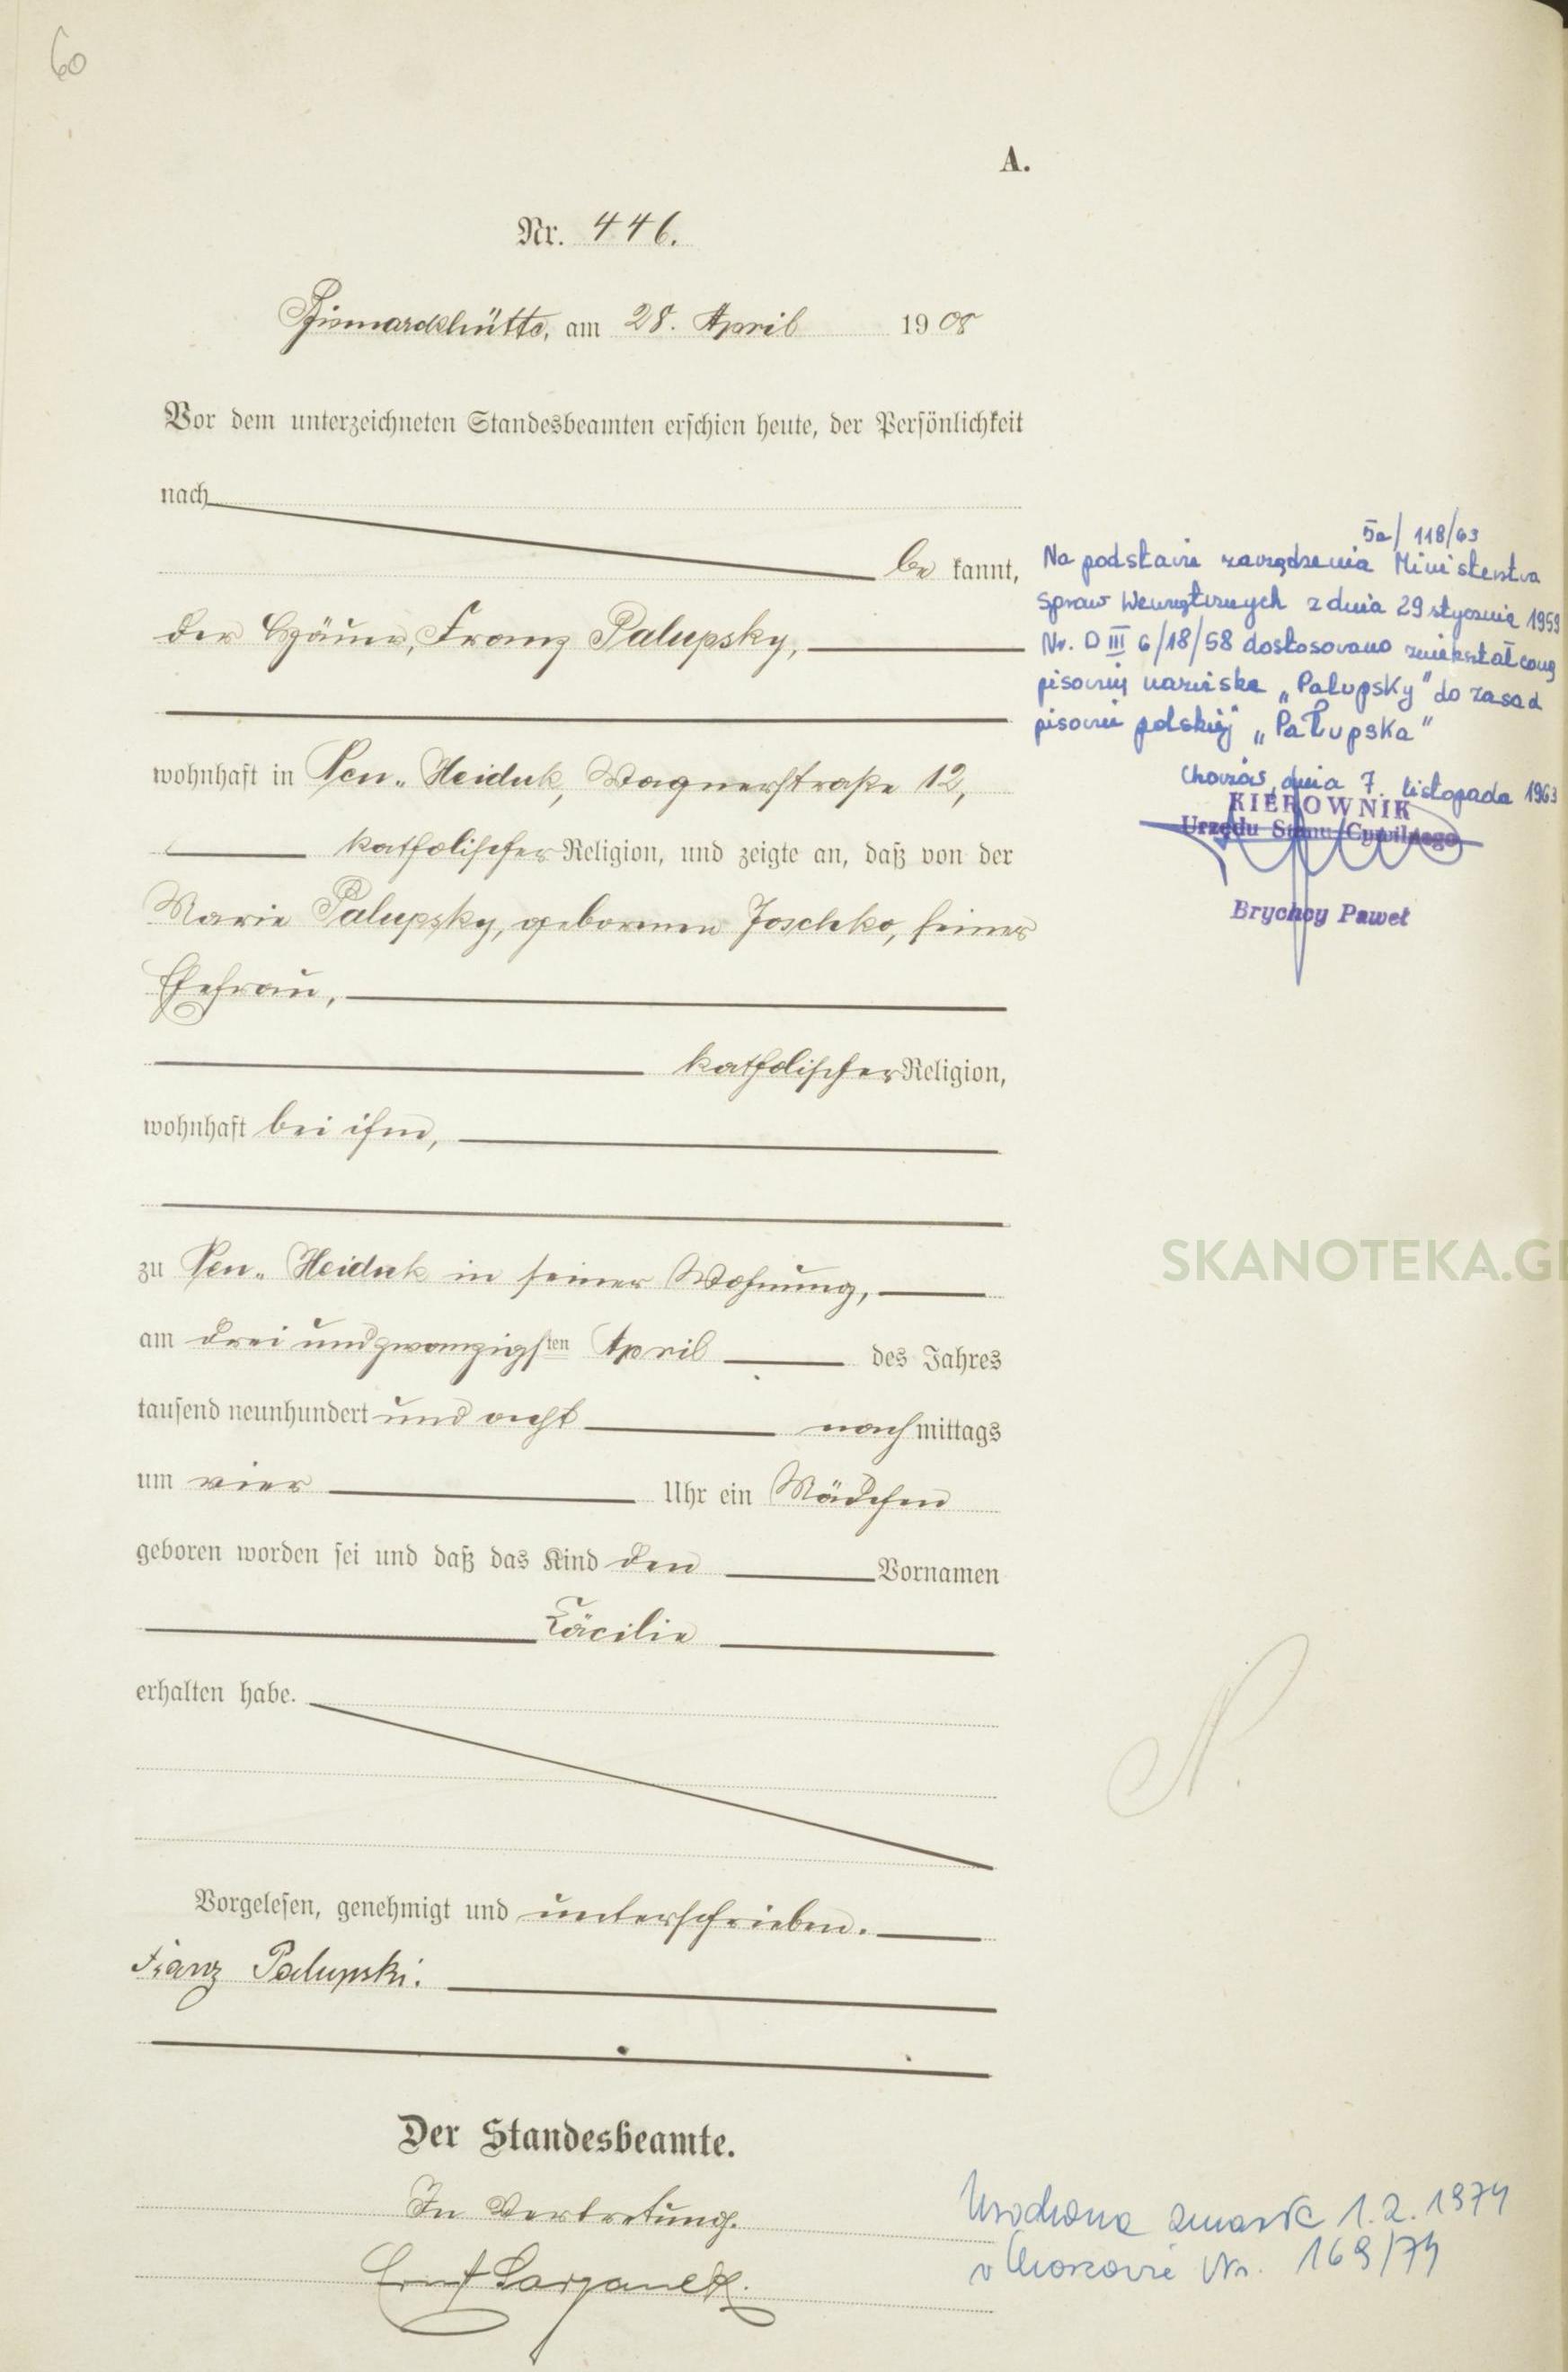 60
A.
Nr. 446.
Bismarckhütte, am 28. April 1908
Vor dem unterzeichneten Standesbeamten erschien heute, der Persönlichkeit
nach
be kannt,
der Häuer, Franz Palupsky,
wohnhaft in Ober-Heiduk, Wagnerstraße 12,
katholischer Religion, und zeigte an, daß von der
Marie Palupsky, geborenen Joschko, seiner
Ehefrau,
katholischer Religion,
wohnhaft bei ihm,
zu Ober-Heiduk in seiner Wohnung,
am drei und zwanzigsten April des Jahres
tausend neunhundert und acht nachmittags
um vier Uhr ein Mädchen
geboren worden sei und daß das Kind den Vornamen
Cäcilie
erhalten habe.
Vorgelesen, genehmigt und unterschrieben.
Franz Palupski.
Der Standesbeamte.
In Vertretung.
Ernst
5a/118/63
Na podstawie zarządzenia Ministerstwa
Spraw Wewnętrznych z dnia 29 stycznia 1959
Nr. D III 6/18/58 dostosowano zniekształconą
pisownię nazwiska „Palupsky" do zasad
pisowni polskiej „Pałupska"
Chorzów, dnia 7. listopada 1963
KIEROWNIK
Urzędu Stanu Cywilnego
Brychcy Paweł
SKANOTEKA.GE
N.
zmarła 1.2.1974
w Chorzowie Nr. 169/74